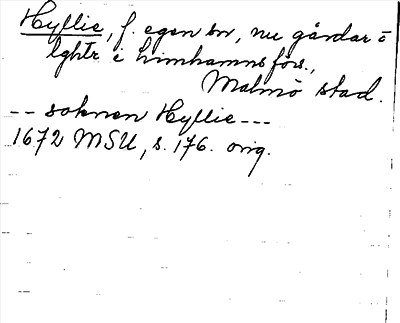 Hyllie, f. egen sn, nu gårdar o
lghtr i Limhamns förs.,
Malmö stad.
-- soknen Hyllie ---
1672 MSU, s. 176. orig.